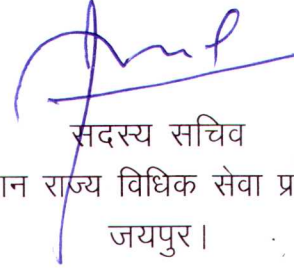 सदस्य सचिव
ान राज्य विधिक सेवा प्र
जयपुर।